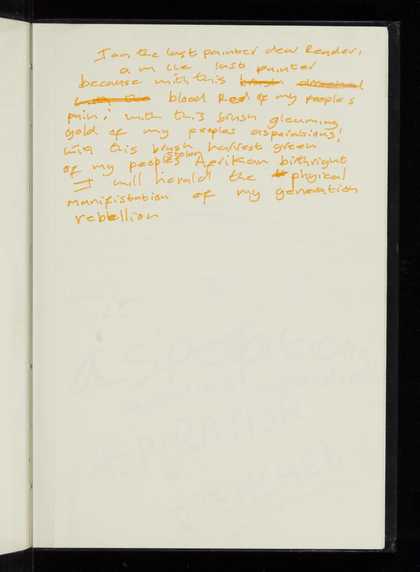 I am the last painter dear Reader,
a m the last painter
because with this
blood Red of my peoples
pain, with this brush gleaming
gold of my peoples asparassions,
with this brush harvest green
of my peoples stolen Afrikaan birthright
I will herald the phyical
manifistation of my generation
rebellion